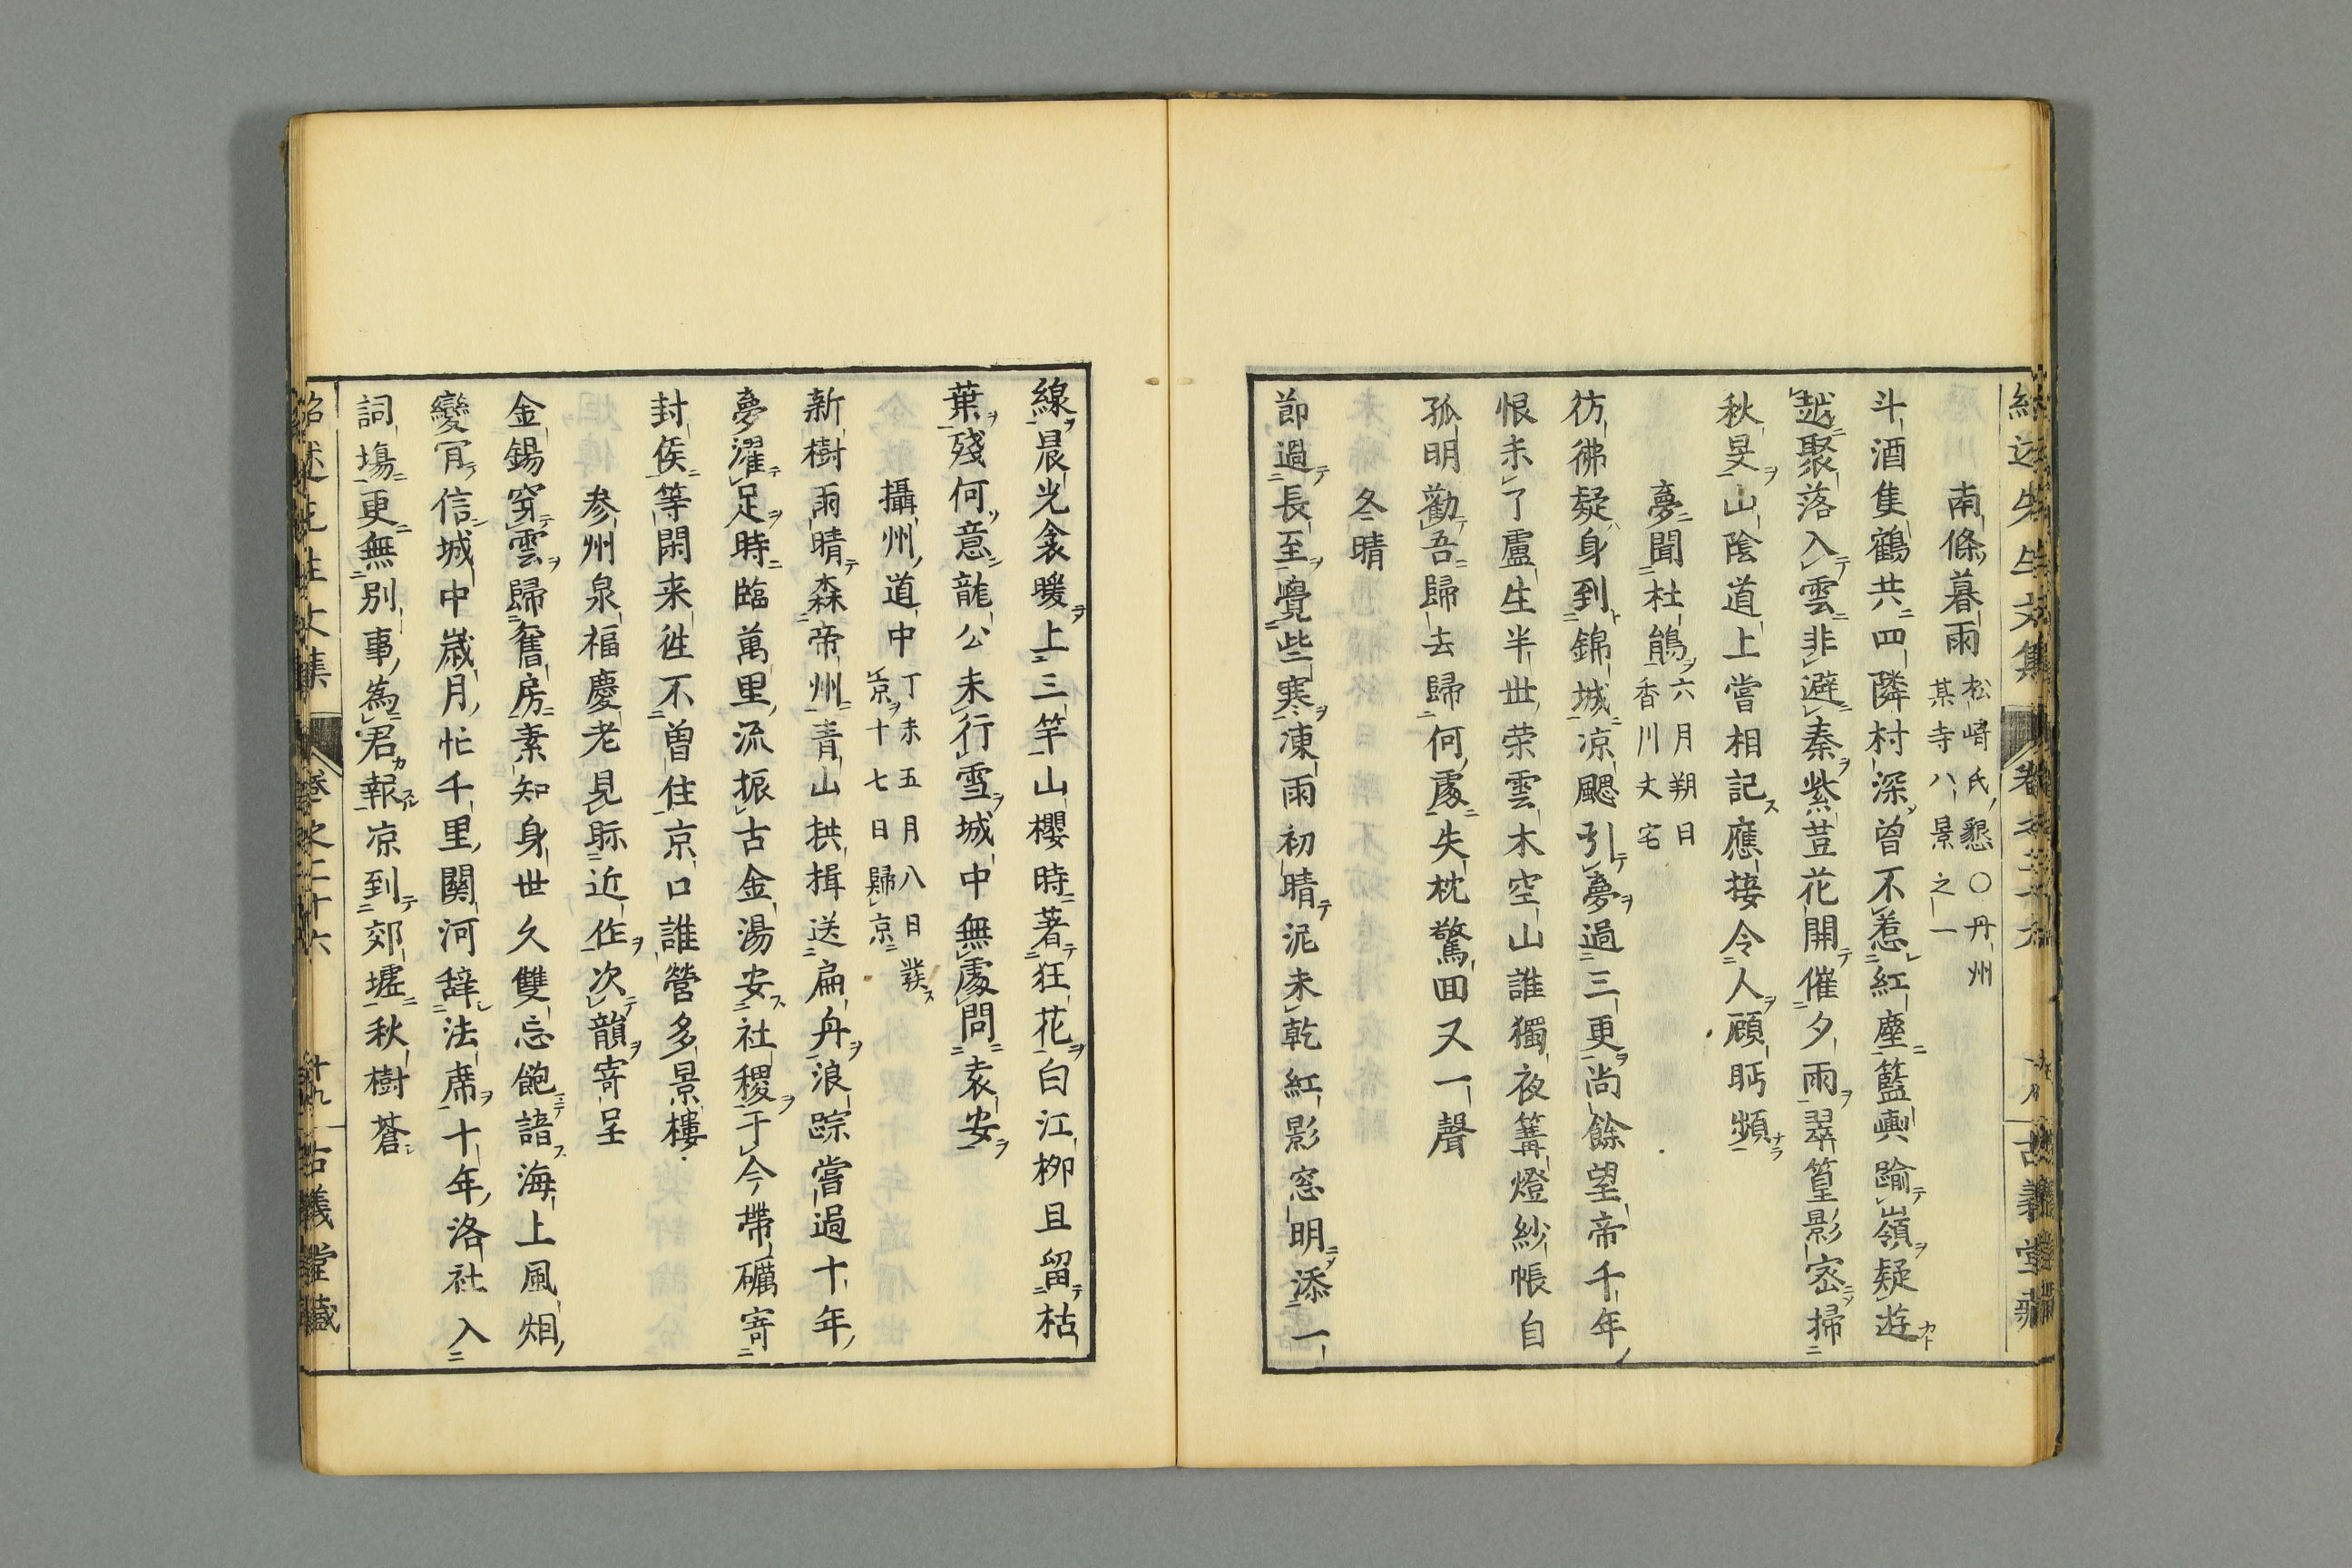 紹述先生文集 卷之二十六 古義堂藏
南條暮雨 松崎氏懇○丹州某寺八景之一
斗酒隻鶴共四隣村深曾不惹紅塵籃輿踰嶺疑遊
越聚落入雲非避秦紫荳花開催夕雨翠篁影密掃
秋旻山陰道上嘗相記應接令人顧眄頻
夢聞杜鵑 六月朔日香川丈宅
彷彿疑身到錦城凉颸引夢過三更尚餘望帝千年
恨未了盧生半世荣雲木空山誰獨夜篝燈紗帳自
孤明勸吾歸去歸何處失枕驚回又一聲
冬晴
節過長至覺些寒凍雨初晴泥未乾紅影窓明添一
線晨光衾暖上三竿山櫻時著狂花白江栁且留枯
葉殘何意龍公未行雪城中無處問袁安
攝州道中 丁未五月八日發京十七日歸京
新樹雨晴森帝州青山拱揖送扁舟浪踪嘗過十年
夢濯足時臨萬里流振古金湯安社稷于今帶礪寄
封侯等閑来徃不曾住京口誰營多景樓
参州泉福慶老見眎近作次韻寄呈
金錫穿雲歸舊房素知身世久雙忘飽諳海上風烟
變肎信城中歳月忙千里關河辞法席十年洛社入
詞塲更無別事為君報凉到郊墟秋樹蒼
紹述先生文集 卷之二十六 十九 古義堂藏